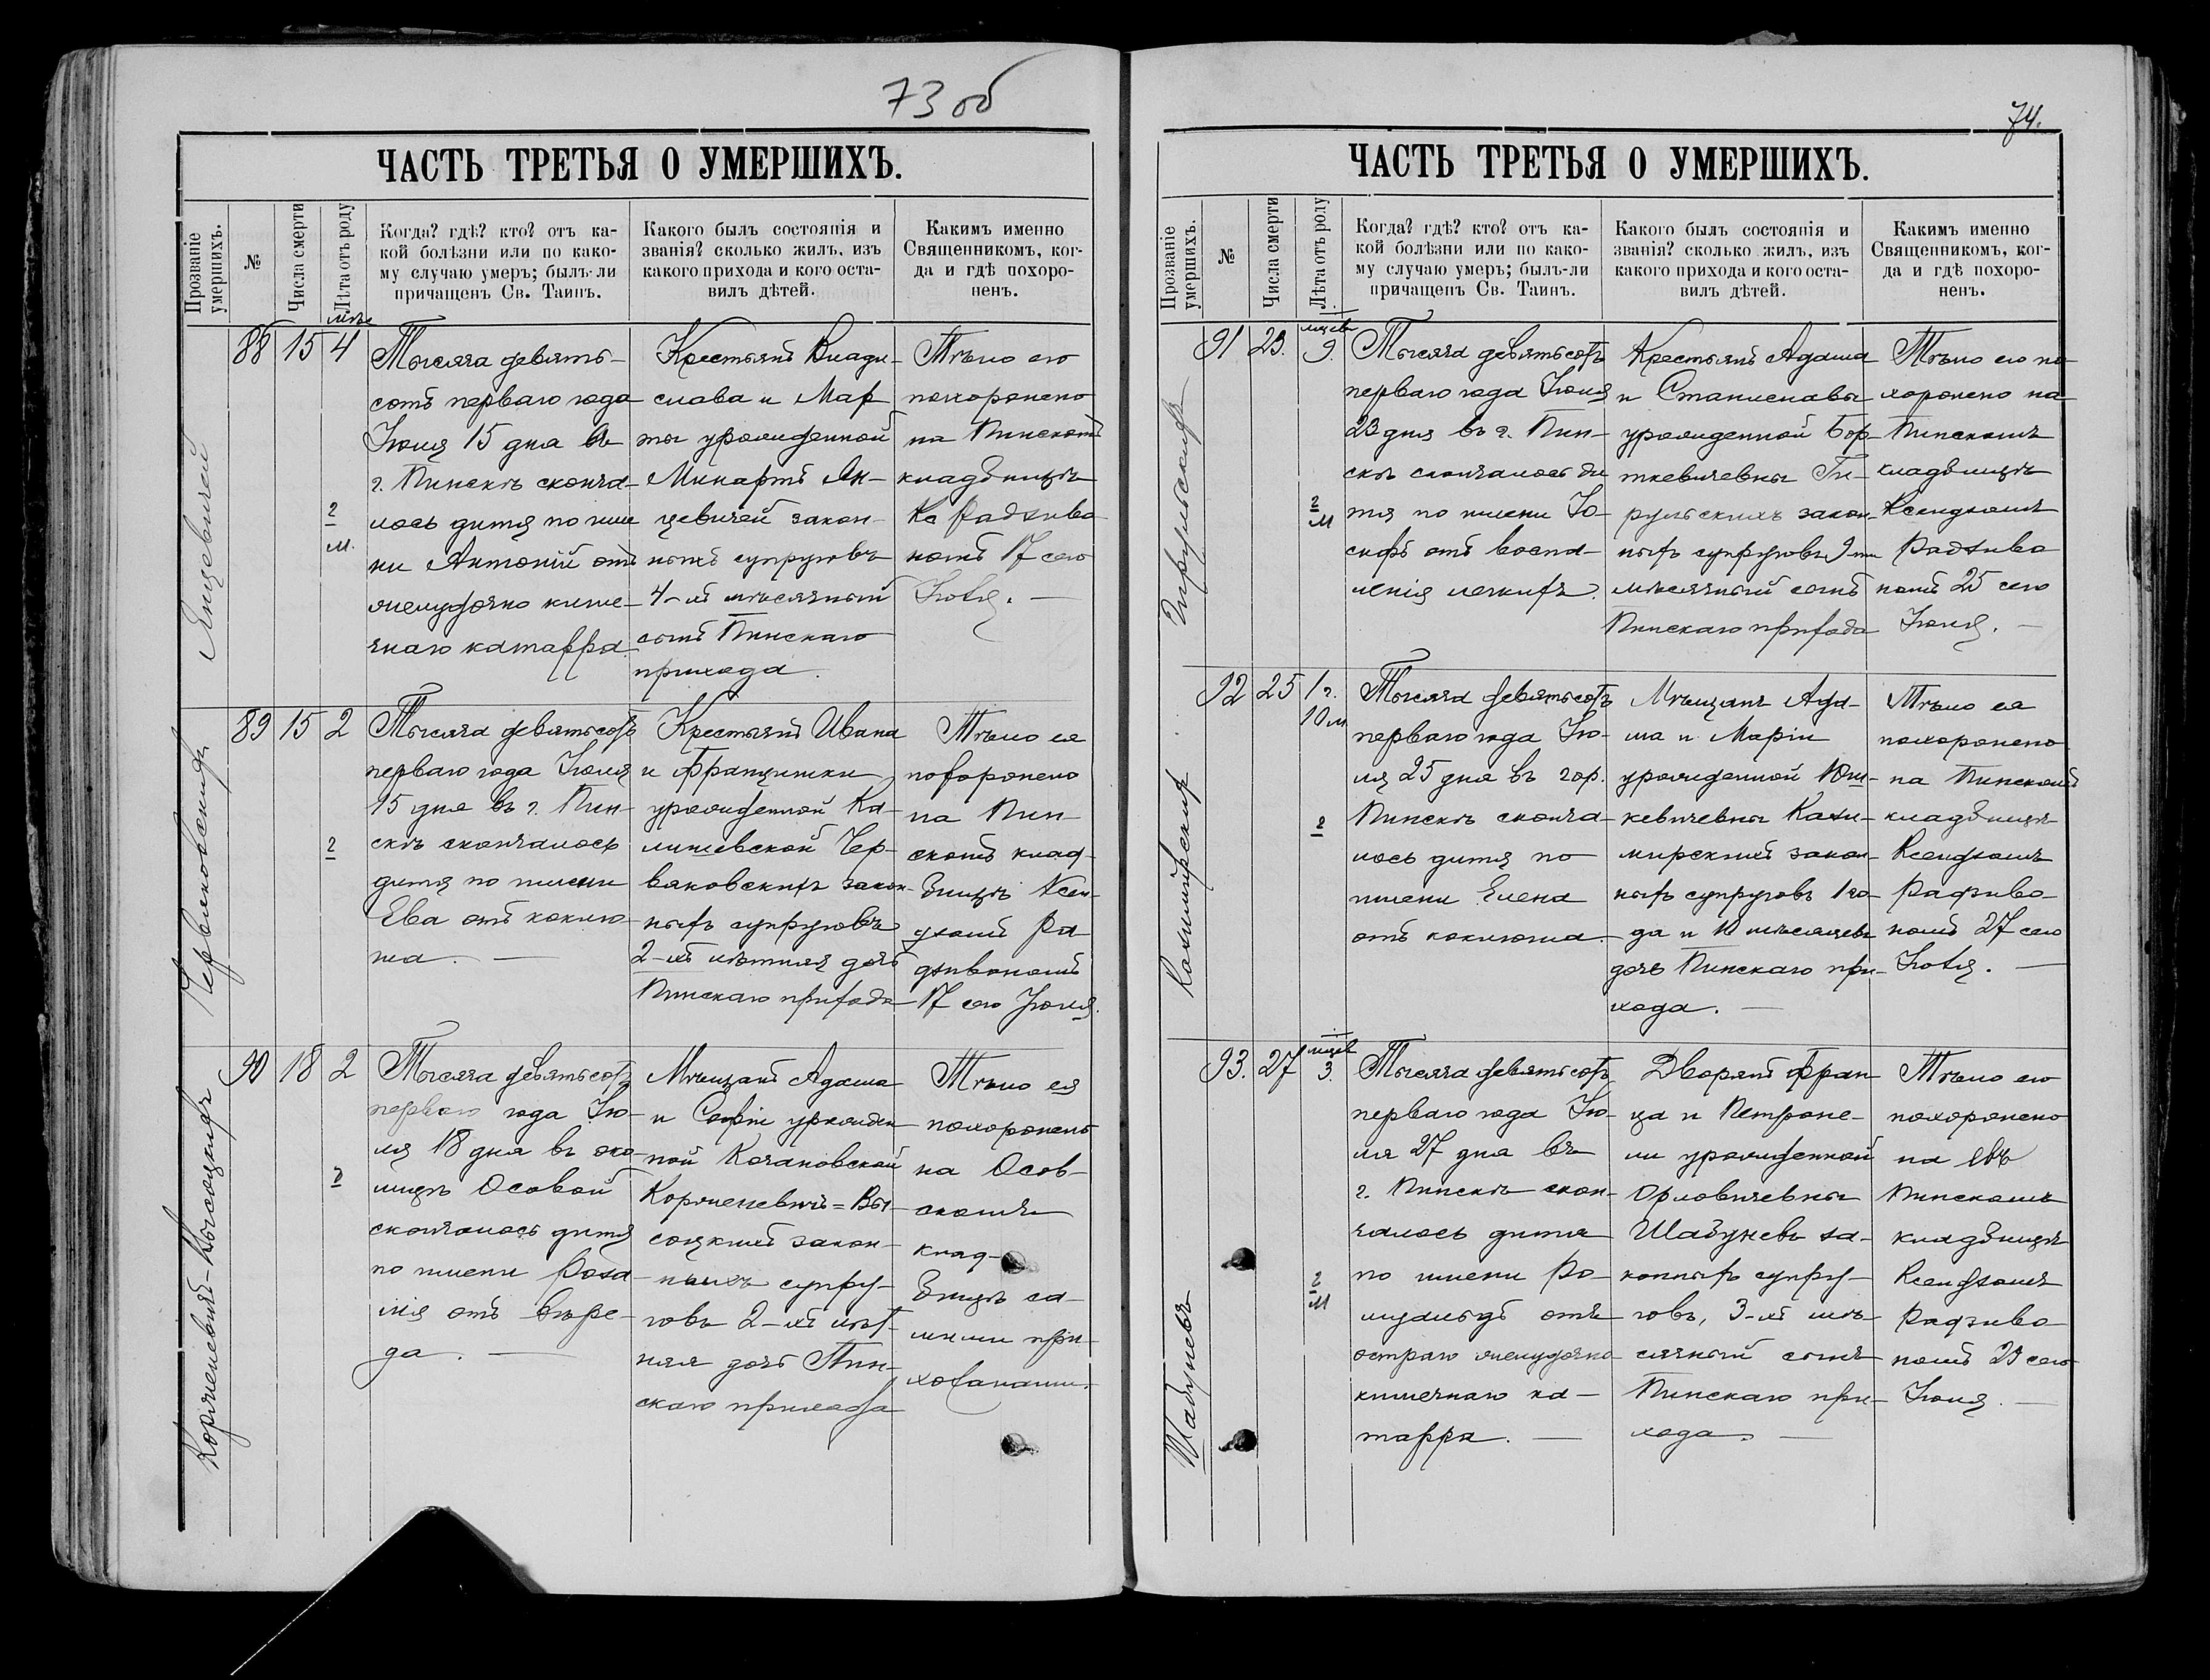 73 об
ЧАСТЬ ТРЕТЬЯ О УМЕРШИХЪ.
Прозваніе умершихъ.
№
Числа смерти
Лѣта отъ роду
Когда? гдѣ? кто? отъ ка-
кой болѣзни или по како-
му случаю умеръ; былъ-ли
причащенъ Св. Таинъ.
Какого былъ состоянія и
званія? сколько жилъ, изъ
какого прихода и кого оста-
вилъ дѣтей.
Какимъ именно
Священникомъ, ког-
да и гдѣ похоро-
ненъ.
Янцевичей
88
15
4
2
м.
Тысяча девять-
сотъ перваго года
Іюля 15 дня въ
г. Пинскѣ сконча-
лось дитя по име
ни Антоній отъ
желудочно кише-
чнаго катарра.
Крестьянъ Влади-
слава и Мар
ты урожденной
Минартъ Ян-
цевичей закон-
ныхъ супруговъ
4-хъ мѣсячный
сынъ Пинскаго
прихода.
Тѣло его
похоронено
на Пинскомъ
кладбищѣ
Кс Радзиво
номъ 17 сего
Іюля. —
Червяковскихъ
89
15
2
2
Тысяча девятьсотъ
перваго года Іюля
15 дня въ г. Пин-
скѣ скончалось
дитя по имени
Ева отъ коклю-
ша. —
Крестьянъ Ивана
и Францишки
урожденной Ка-
лишевской Чер-
вяковскихъ закон-
ныхъ супруговъ
2-хъ лѣтняя дочь
Пинскаго прихода
Тѣло ея
похоронено
на Пин-
скомъ клад-
бищѣ Ксен-
дзомъ Ра
дзивономъ
17 сего Іюля.
Корженевичъ-Высоцкихъ
90
18
2
2
Тысяча девятьсотъ
перваго года Ію-
ля 18 дня въ око-
лицѣ Осовой
скончалось дитя
по имени Роза
лія отъ вере-
да. —
Мѣщанъ Адама
и Софіи урожден
ной Кочановской
Корженевичъ=Вы-
соцкихъ закон-
ныхъ супру-
говъ 2-хъ лѣт-
няя дочь Пин-
скаго прихода
Тѣло ея
похоронено
на Осов-
скомъ
клад-
бищѣ са-
мими при-
хожанами.
74.
ЧАСТЬ ТРЕТЬЯ О УМЕРШИХЪ.
Прозваніе умершихъ.
№
Числа смерти
Лѣта отъ роду
Когда? гдѣ? кто? отъ ка-
кой болѣзни или по како-
му случаю умеръ; былъ-ли
причащенъ Св. Таинъ.
Какого былъ состоянія и
званія? сколько жилъ, изъ
какого прихода и кого оста-
вилъ дѣтей.
Какимъ именно
Священникомъ, ког-
да и гдѣ похоро-
ненъ.
91
23.
9.
2
м
Тысяча девятьсотъ
перваго года Іюля
23 дня въ г. Пин-
скѣ скончалось ди
тя по имени Іо-
сифъ отъ воспа-
ленія легкихъ.
Крестьянъ Адама
и Станиславы
урожденной Бор-
ткевичевны Ги-
рульскихъ закон-
ныхъ супруговъ 9-ти
мѣсячный сынъ
Пинскаго прихода
Тѣло его по
хоронено на
Пинскомъ
кладбищѣ
Ксендзомъ
Радзиво
номъ 25 сего
Іюля. —
Казимирскихъ
92
25
1 г.
10 м.
2
Тысяча девятьсотъ
перваго года Ію-
ля 25 дня въ гор.
Пинскѣ сконча-
лось дитя по
имени Елена
отъ коклюша.
Мѣщанъ Ада-
ма и Маріи
урожденной Юш-
кевичевны Кази-
мирскихъ закон-
ныхъ супруговъ 1 го-
да и 10 мѣсяцевъ
дочь Пинскаго при-
хода. —
Тѣло ея
похоронено
на Пинскомъ
кладбищѣ
Ксендзомъ
Радзиво-
номъ 27 сего
Іюля. —
Шабуневъ
93.
27
3.
2
м
Тысяча девятьсотъ
перваго года Ію-
ля 27 дня въ
г. Пинскѣ скон-
чалось дитя
по имени Ро-
муальдъ отъ
остраго желудочно
кишечнаго ка-
тарра. —
Дворянъ Фран
ца и Петроне-
ли урожденной
Орловичевны
Шабуневъ за-
конныхъ супру-
говъ, 3-хъ мѣ-
сячный сынъ
Пинскаго при-
хода. —
Тѣло его
похоронено
на
Пинскомъ
кладбищѣ
Ксендзомъ
Радзиво
номъ 29 сего
Іюля. —